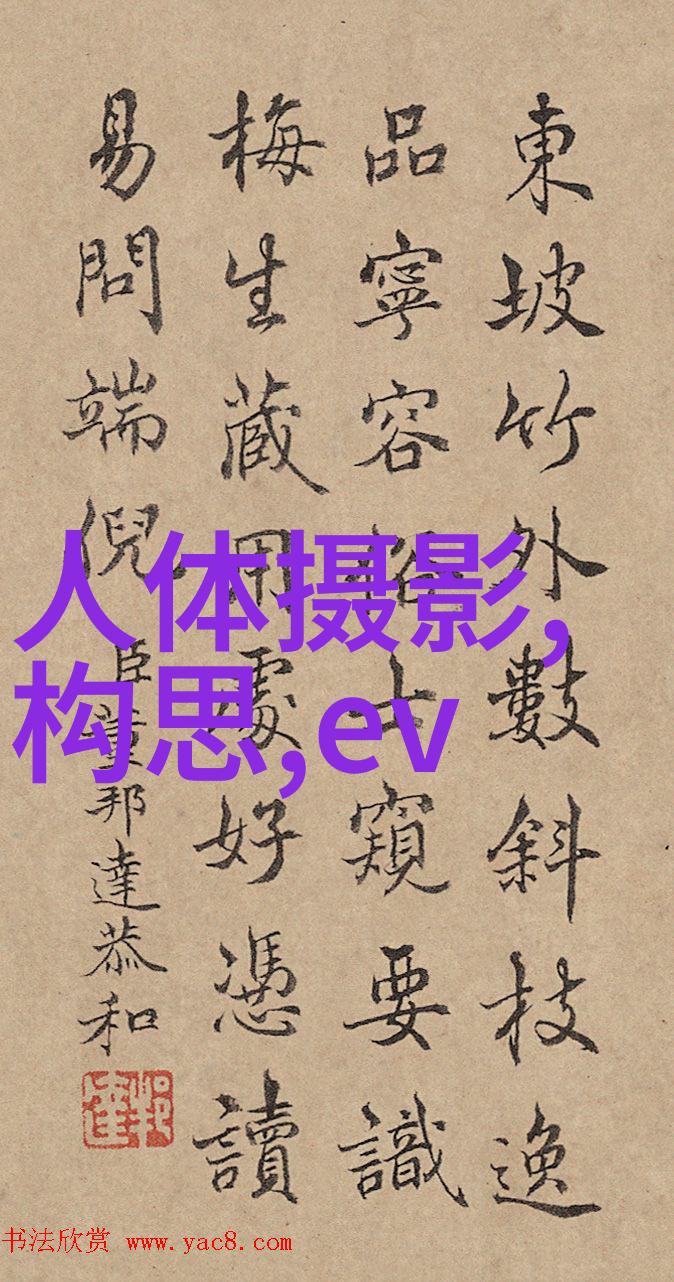 東坡竹外數斜枝逸
品寧容俗士窺要識
梅生藏用處好憑讀
易問端倪
臣董邦達恭和
人体摄影,
构思,ev
书法欣赏 www.yac8.com